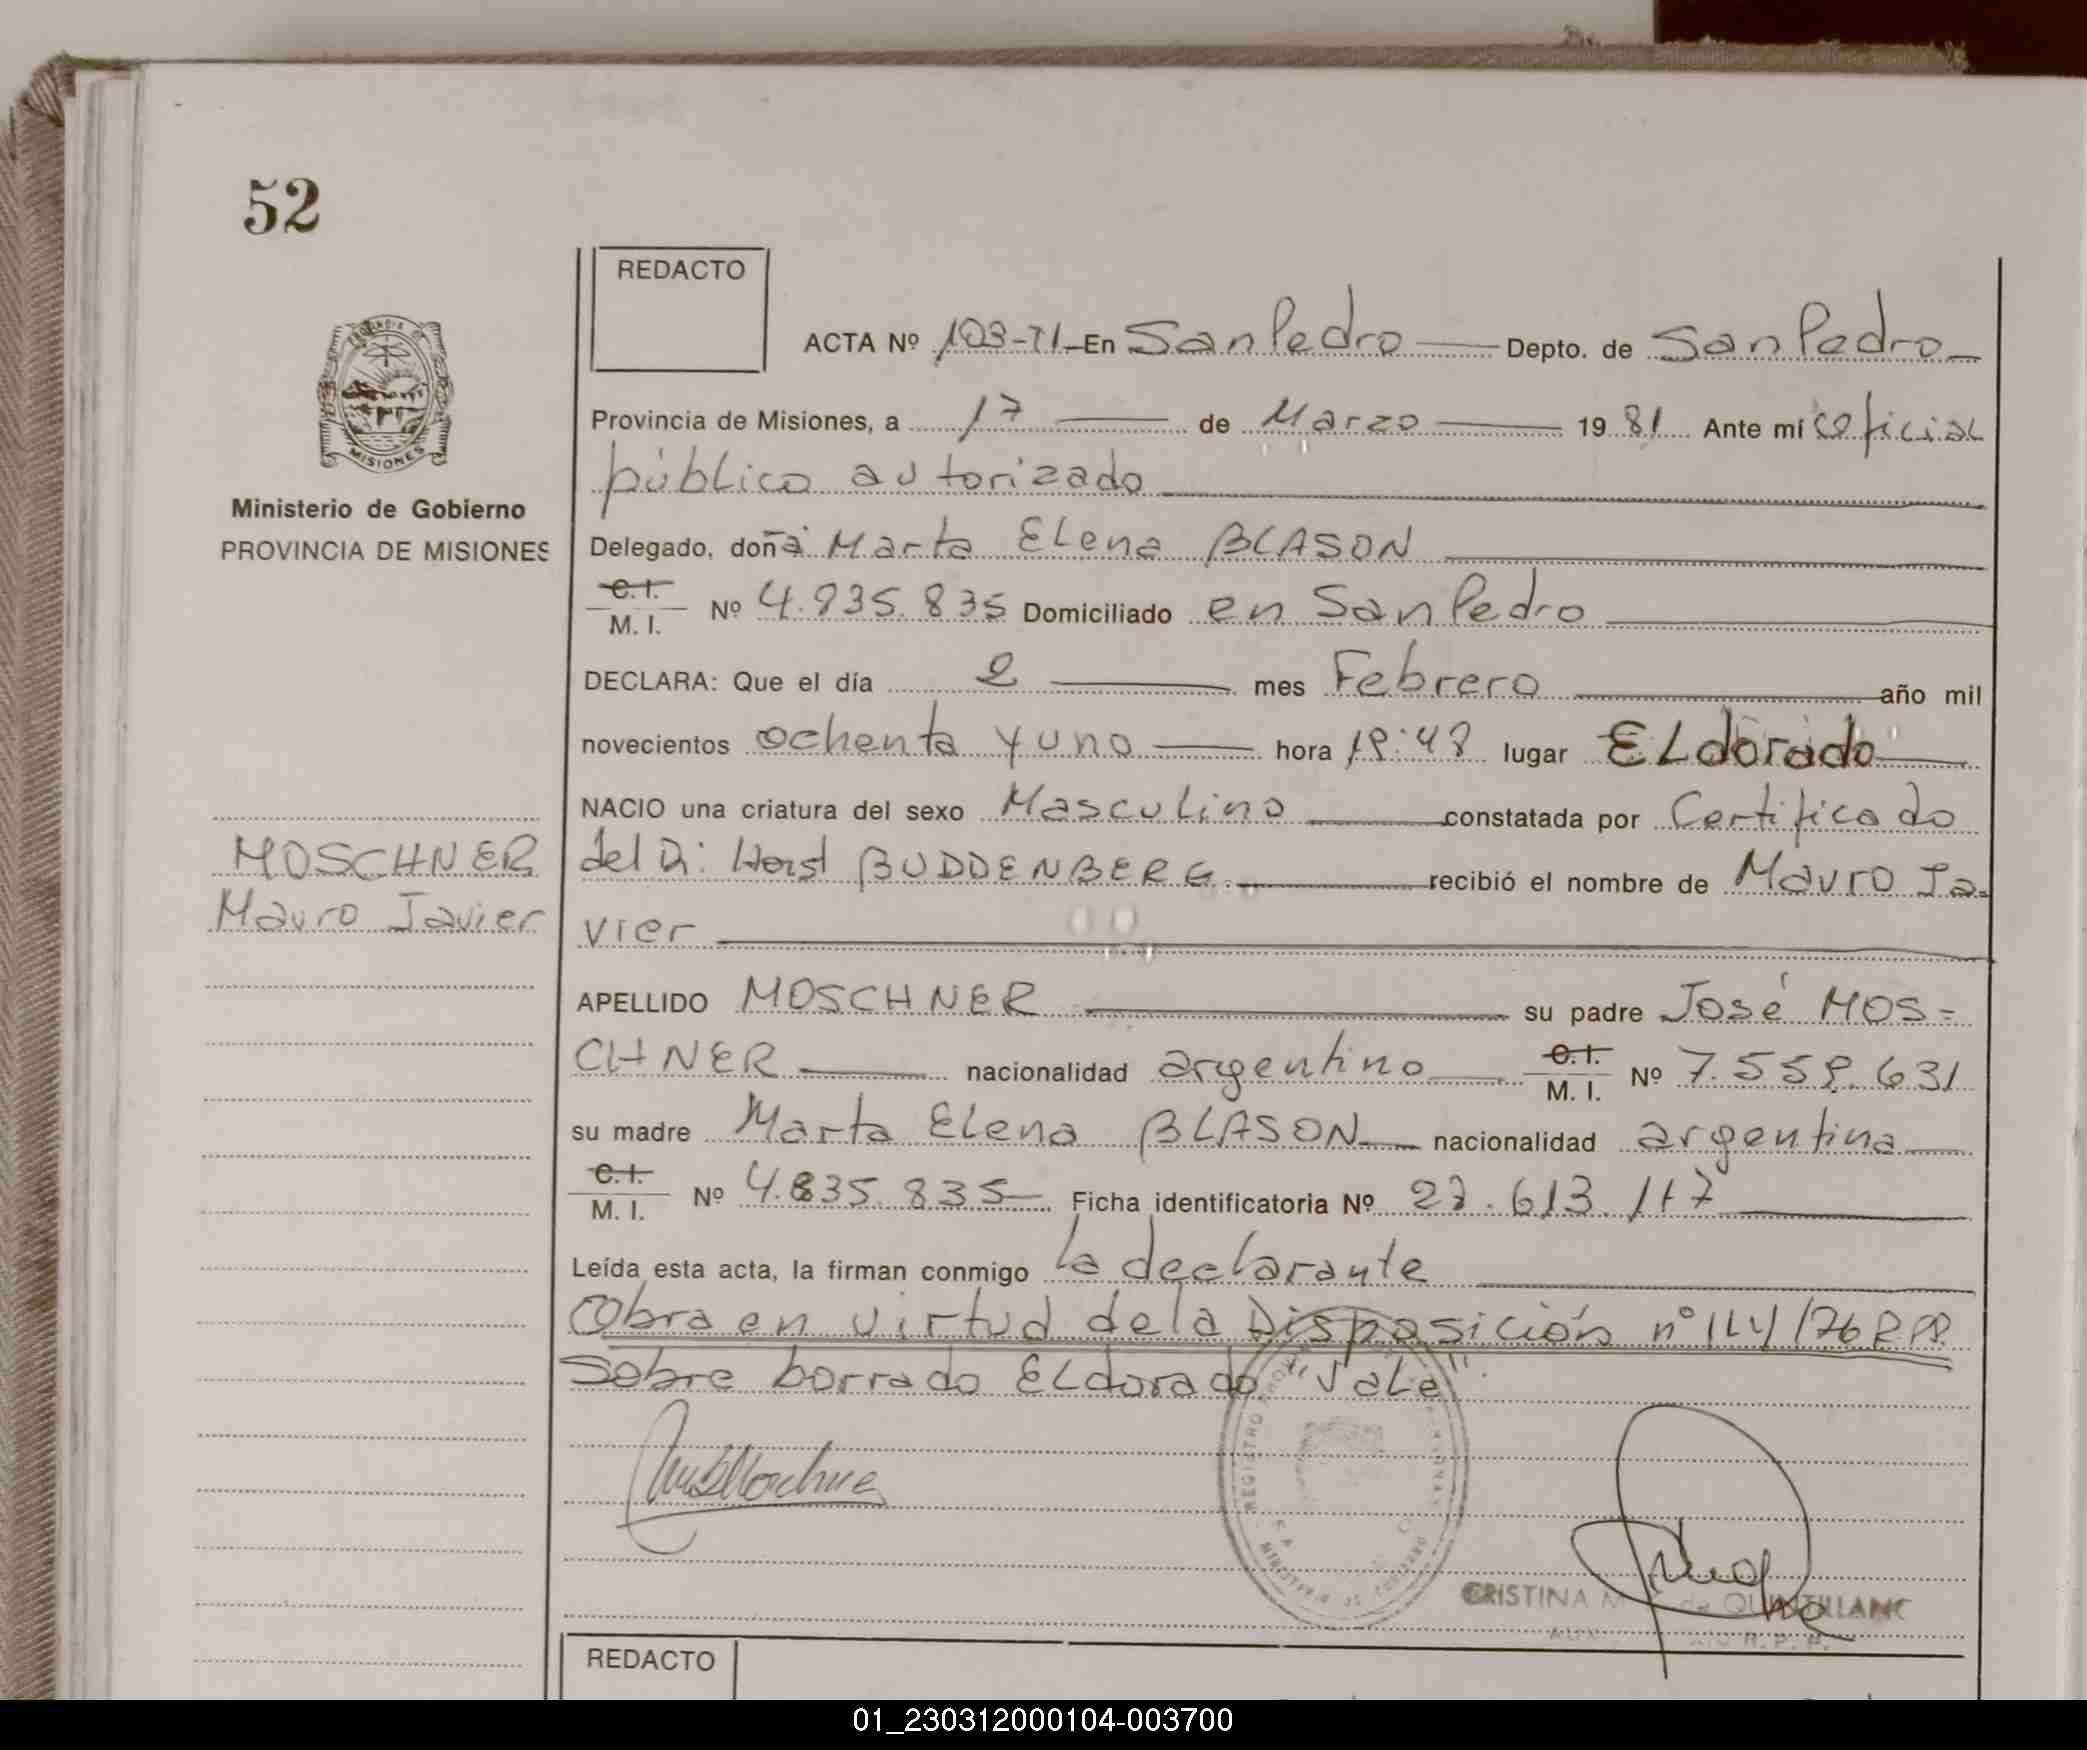 52
REDACTO
ACTA Nº 103-TI- En San Pedro Depto. de San Pedro
Provincia de Misiones, a 17 de Marzo 1981 Ante mí oficial
público autorizado
Ministerio de Gobierno
PROVINCIA DE MISIONES
Delegado, doña Marta Elena BLASON
C.I.
M. I. Nº 4.835.835 Domiciliado en San Pedro
DECLARA: Que el día 2 mes Febrero año mil
novecientos ochenta y uno hora lugar ELdorado
NACIO una criatura del sexo Masculino constatada por Certificado
MOSCHNER
Mauro Javier
del Dr. Horst BUDDENBERG recibió el nombre de Mauro Ja-
vier
APELLIDO MOSCHNER su padre José MOS=
CHNER nacionalidad argentino C.I.
M. I. Nº 7.559.631
su madre Marta Elena BLASON nacionalidad argentina
C.I.
M. I. Nº 4.835.835 Ficha identificatoria Nº 27.613.117
Leída esta acta, la firman conmigo la declarante
Obra en virtud de la Disposición nº
Sobre borrado ELdorado "Vale"
CRISTINA M de QUINTILLANO
REDACTO
01_230312000104-003700